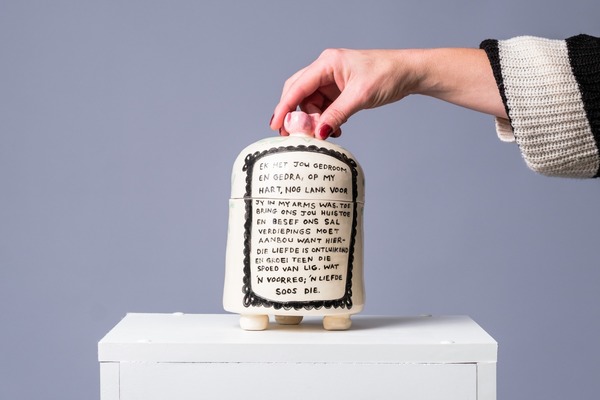 EK HET JOU GEDROOM
EN GEDRA, OP MY
HART, NOG LANK VOOR
JY IN MY ARMS WAS. TOE
BRING ONS JOU HUISTOE
EN BESEF ONS SAL
VERDIEPINGS MOET
AANBOU WANT HIER-
DIE LIEFDE IS ONTLUIKEND
EN GROEI TEEN DIE
SPOED VAN LIG. WAT
'N VOORREG; 'N LIEFDE
SOOS DIE.